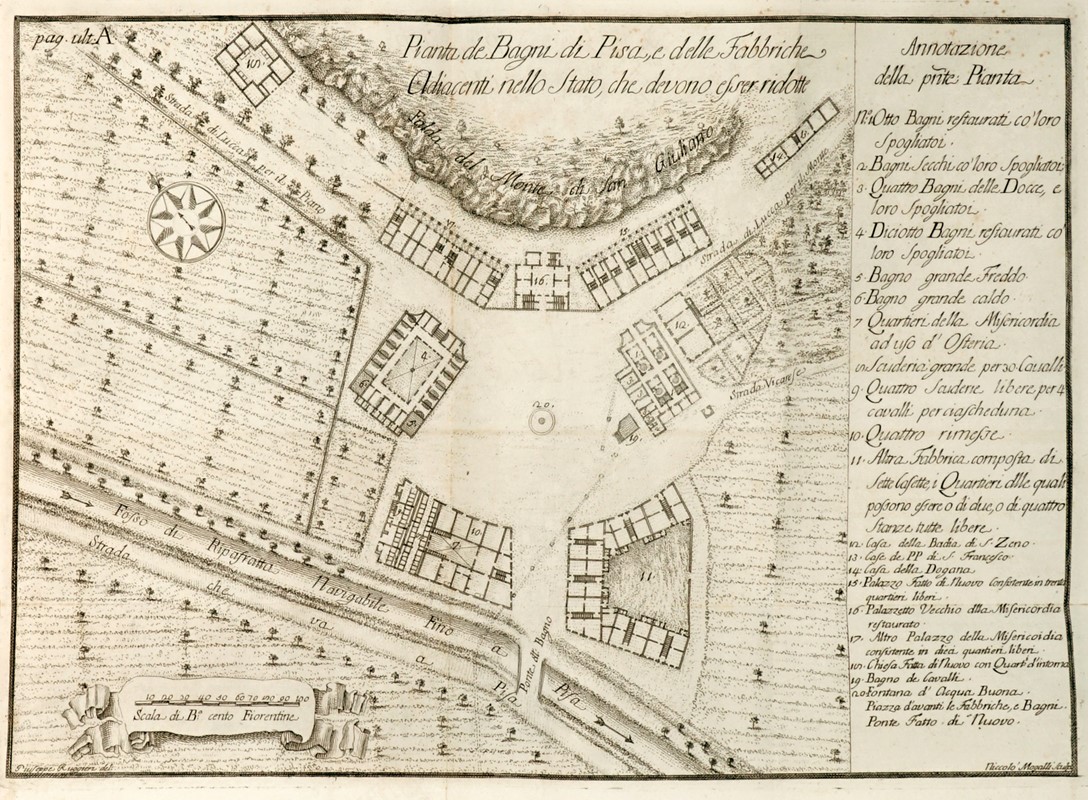 pag. ult. A
Pianta de Bagni di Pisa, e delle Fabbriche
Adiacenti nello Stato, che devono esser ridotte
Annotazione
della pñte Pianta
N.1 Otto Bagni restaurati co' loro
Spogliatoi.
2 Bagni Secchi co' loro Spogliatoi
3. Quattro Bagni delle Docce, e
loro Spogliatoi.
4 Diciotto Bagni restaurati co'
loro Spogliatoi.
5. Bagno grande Freddo
6. Bagno grande caldo.
7 Quartieri della Misericordia
ad uso d' Osteria.
8. Scuderia grande per 30 Cavalli
9. Quattro Scuderie libere per 4
cavalli per ciascheduna.
10. Quattro rimesse.
11. Altra Fabbrica composta di
sette Casette, i Quartieri dlle quali
possono essere o di due, o di quattro
Stanze tutte libere.
12. Casa della Badia di S. Zeno.
13. Case de PP. di S. Francesco
14. Casa della Dogana
15. Palazzo Fatto di Nuovo Consistente in trenta
quartieri liberi.
16. Palazzetto Vecchio dlla Misericordia
restaurato.
17. Altro Palazzo della Misericordia
consistente in dieci quartieri liberi.
18. Chiesa Fatta di Nuovo con Quart. d'intorno
19. Bagno de Cavalli.
20. Fontana d' Acqua Buona.
Piazza d'avanti le Fabbriche, e Bagni.
Ponte Fatto di Nuovo.
18.
Strada di Lucca per il Piano
Falda del Monte di San Giuliano
Strada di Lucca per il Monte
17.
16.
15.
12
4.
6.
5.
20.
19.
Strada Vicanse
10.
9
11
Fosso di Ripafratta Navigabile fino a Pisa
Strada che va a Pisa
Ponte al Bagno
10 20 30 40 50 60 70 80 90 100
Scala di B.a cento Fiorentine
Giuseppe Ruggieri del.
Niccolò Mogalli Sculp.